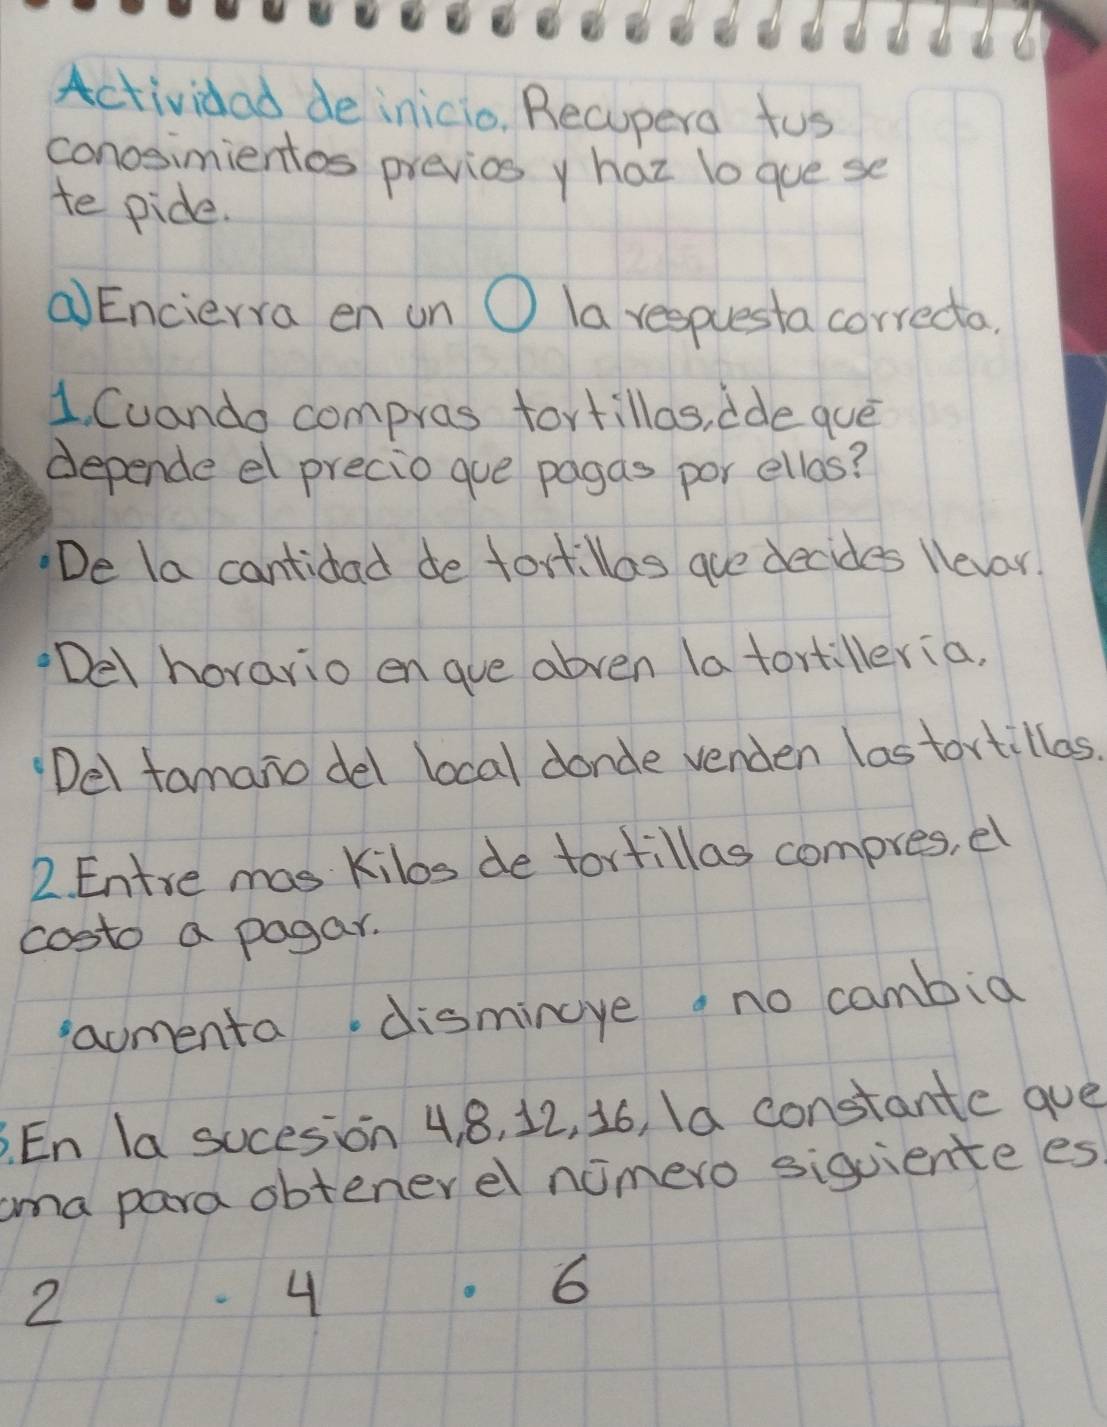 Actividad de inicio. Recupera tus
conosimientos previos y haz lo que se
te pide.
a) Encierra en un O la respuesta correcta.
1. Cuando compras tortillas, ¿de qué
depende el precio que pagas por ellas?
• De la cantidad de tortillas que decides llevar.
• Del horario en que abren la tortillería.
• Del tamaño del local donde venden las tortillas.
2. Entre mas Kilos de tortillas compres, el
costo a pagar.
• aumenta • disminuye • no cambia
3. En la sucesión 4, 8, 12, 16, la constante que
uma para obtener el número siguiente es.
2 • 4 • 6